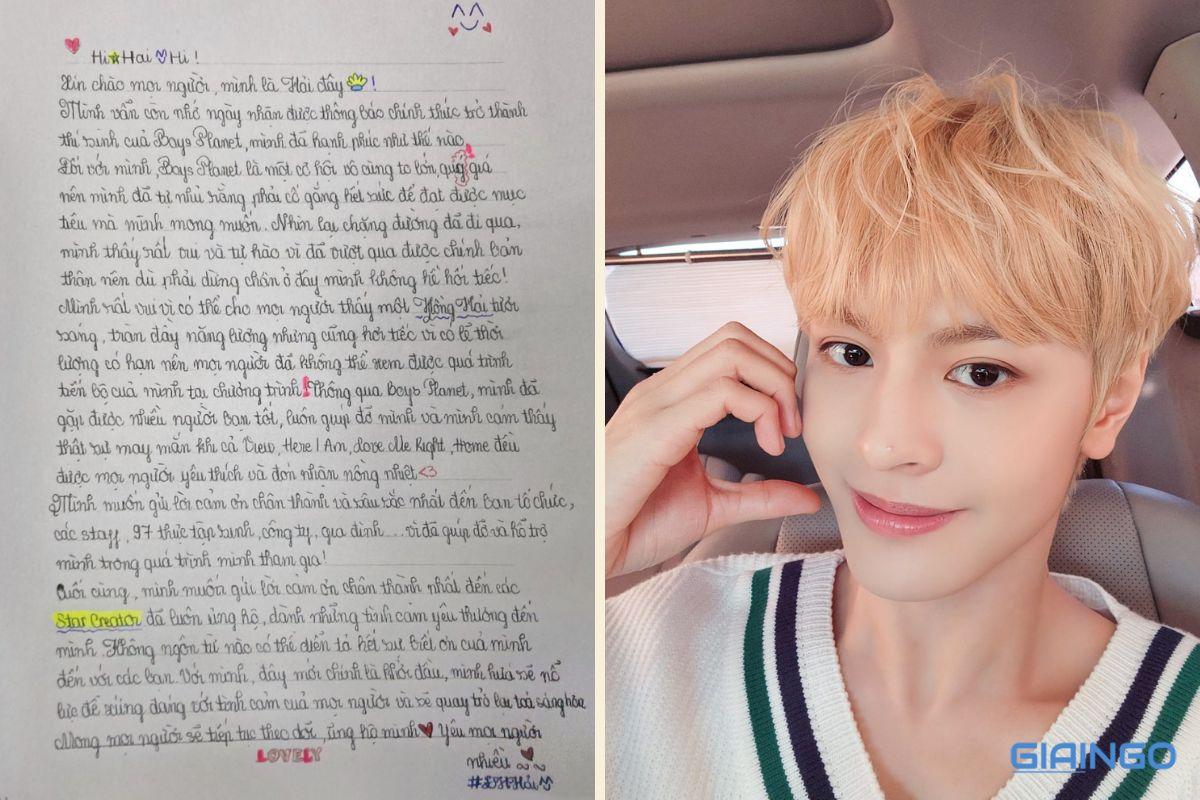 Hi Hai Hi !
Xin chào mọi người, mình là Hải đây !
Mình vẫn còn nhớ ngày nhận được thông báo chính thức trở thành
thí sinh của Boys Planet, mình đã hạnh phúc như thế nào
Đối với mình, Boys Planet là một cơ hội vô cùng to lớn, quý giá
nên mình đã tự nhủ rằng phải cố gắng hết sức để đạt được mục
tiêu mà mình mong muốn. Nhìn lại chặng đường đã đi qua,
mình thấy rất vui và tự hào vì đã vượt qua được chính bản
thân nên dù phải dừng chân ở đây mình không hề hối tiếc!
Mình rất vui vì có thể cho mọi người thấy một Hồng Hải tươi
sáng, tràn đầy năng lượng nhưng cũng hơi tiếc vì có lẽ thời
lượng có hạn nên mọi người đã không thể xem được quá trình
tiến bộ của mình tại chương trình ! Thông qua Boys Planet, mình đã
gặp được nhiều người bạn tốt, luôn giúp đỡ mình và mình cảm thấy
thật sự may mắn khi cả View, Here I Am, Love Me Right, Home đều
được mọi người yêu thích và đón nhận nồng nhiệt <3
Mình muốn gửi lời cảm ơn chân thành và sâu sắc nhất đến ban tổ chức,
các staff, 97 thực tập sinh, công ty, gia đình.... vì đã giúp đỡ và hỗ trợ
mình trong quá trình mình tham gia!
Cuối cùng, mình muốn gửi lời cảm ơn chân thành nhất đến các
Star Creator đã luôn ủng hộ, dành những tình cảm yêu thương đến
mình. Không ngôn từ nào có thể diễn tả hết sự biết ơn của mình
đến với các bạn. Với mình, đây mới chính là khởi đầu, mình hứa sẽ nỗ
lực để xứng đáng với tình cảm của mọi người và sẽ quay trở lại toả sáng hơn
Mong mọi người sẽ tiếp tục theo dõi, ủng hộ mình Yêu mọi người
LOVELY
nhiều
GIAINGO